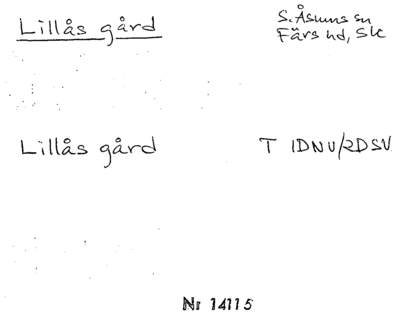 Lillås gård
S. Åsums sn
Färs hd, Sk
Lillås gård
T 1DNV/2DSV
Nr 14115